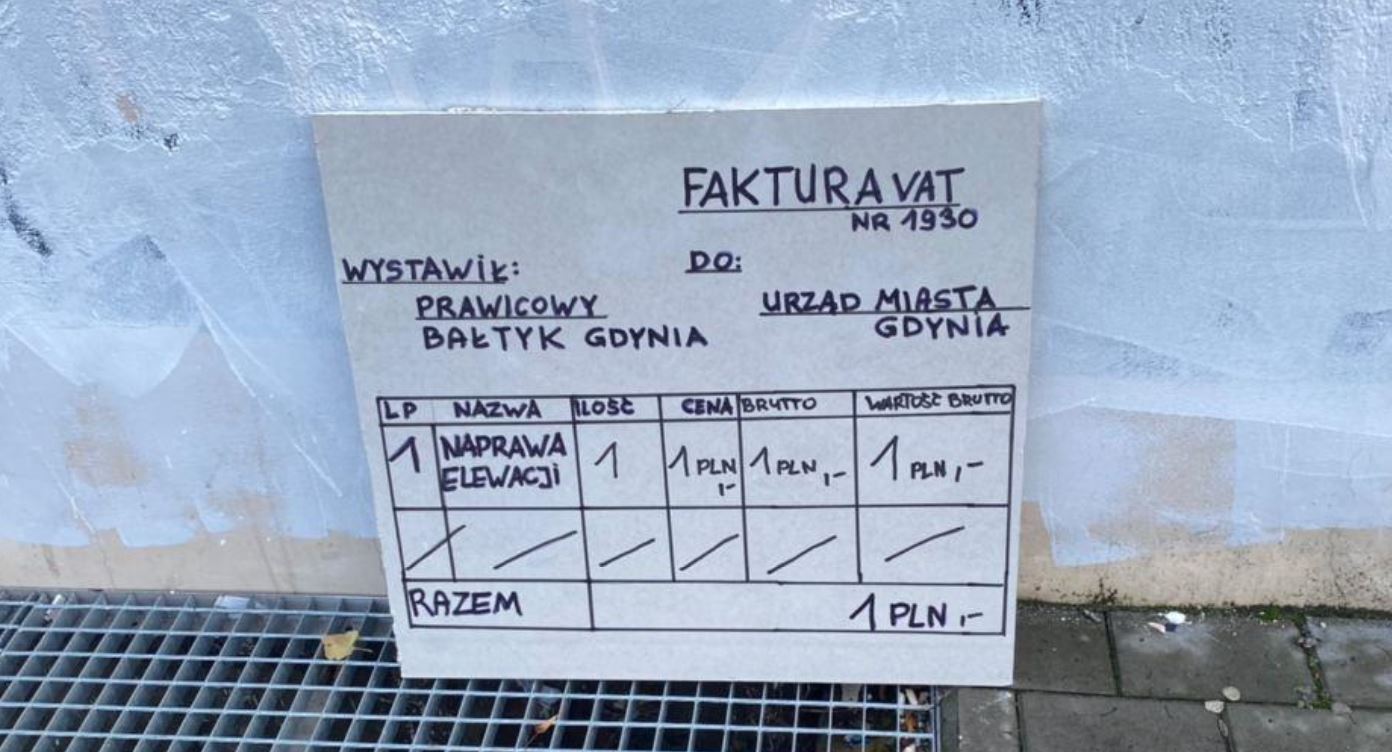 FAKTURA VAT
NR 1930
WYSTAWIŁ:
PRAWICOWY
BAŁTYK GDYNIA
DO:
URZĄD MIASTA
GDYNIA
LP NAZWA ILOŚĆ CENA BRUTTO WARTOŚĆ BRUTTO
1 NAPRAWA ELEWACJI 1 1 PLN,- 1 PLN,- 1 PLN,-
RAZEM 1 PLN,-